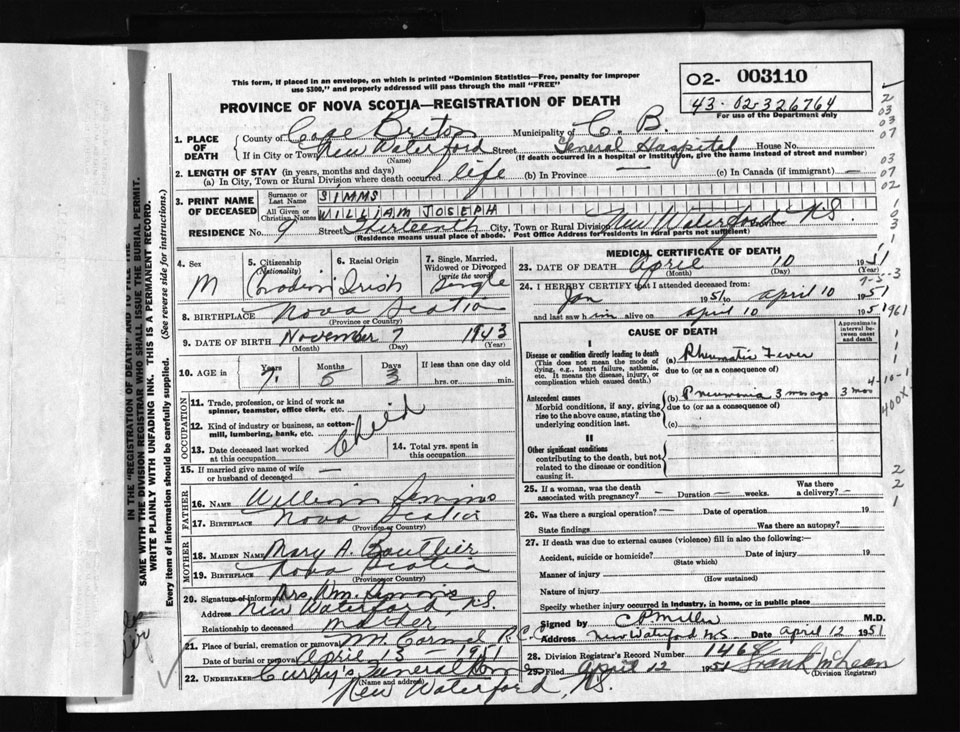 This form, if placed in an envelope, on which is printed "Dominion Statistics—Free, penalty for improper
use $300," and properly addressed will pass through the mail "FREE"
02- 003110
43-02-326764
For use of the Department only
PROVINCE OF NOVA SCOTIA—REGISTRATION OF DEATH
1. PLACE OF DEATH
County of Cape Breton Municipality of C. B.
If in City or Town New Waterford Street General Hospital House No.
(Name) (If death occurred in a hospital or institution, give the name instead of street and number)
2. LENGTH OF STAY (in years, months and days)
(a) In City, Town or Rural Division where death occurred life (b) In Province — (c) In Canada (if immigrant) —
3. PRINT NAME OF DECEASED
Surname or Last Name SIMMS
All Given or Christian Names WILLIAM JOSEPH
RESIDENCE No. 9 Street Thirteenth City, Town or Rural Division New Waterford N.S.
(Residence means usual place of abode. Post Office Address for residents in rural parts not sufficient)
4. Sex M
5. Citizenship (Nationality) Canadian
6. Racial Origin Irish
7. Single, Married, Widowed or Divorced (write the word) Single
8. BIRTHPLACE Nova Scotia
(Province or Country)
9. DATE OF BIRTH November 7 1943
(Month) (Day) (Year)
10. AGE in Years 7 Months 5 Days 3 If less than one day old
hrs. or min.
OCCUPATION
11. Trade, profession, or kind of work as
spinner, teamster, office clerk, etc.
12. Kind of industry or business, as cotton-
mill, lumbering, bank, etc. Child
13. Date deceased last worked
at this occupation
14. Total yrs. spent in
this occupation
15. If married give name of wife
or husband of deceased —
FATHER
16. NAME William Simms
17. BIRTHPLACE Nova Scotia
(Province or Country)
MOTHER
18. MAIDEN NAME Mary A. Gouthier
19. BIRTHPLACE Nova Scotia
(Province or Country)
20. Signature of informant Mrs. Wm. Simms
Address New Waterford, N.S.
Relationship to deceased mother
21. Place of burial, cremation or removal Mt. Carmel R.C.C.
Date of burial or removal April 13 - 1951
22. UNDERTAKER Curry's Funeral Home
(Name and address)
New Waterford N.S.
MEDICAL CERTIFICATE OF DEATH
23. DATE OF DEATH April 10 1951
(Month) (Day) (Year)
24. I HEREBY CERTIFY that I attended deceased from:
Jan 1951 to April 10 1951
and last saw him alive on April 10 1951
CAUSE OF DEATH
Approximate interval between onset and death
I
Disease or condition directly leading to death (a) Rheumatic Fever
(This does not mean the mode of dying, e.g., heart failure, asthenia, etc. It means the disease, injury, or complication which caused death.)
due to (or as a consequence of)
Antecedent causes (b) Pneumonia 3 mos ago 3 mos
Morbid conditions, if any, giving rise to the above cause, stating the underlying condition last.
due to (or as a consequence of)
(c)
II
Other significant conditions
contributing to the death, but not related to the disease or condition causing it.
25. If a woman, was the death
associated with pregnancy? — Duration — weeks. Was there
a delivery? —
26. Was there a surgical operation? — Date of operation 19
State findings Was there an autopsy?
27. If death was due to external causes (violence) fill in also the following:—
Accident, suicide or homicide? Date of injury 19
(State which)
Manner of injury
(How sustained)
Nature of injury
Specify whether injury occurred in industry, in home, or in public place
Signed by C P Miller M.D.
Address New Waterford N.S. Date April 12 1951
28. Division Registrar's Record Number 1468
29. Filed April 12 1951 Frank McLean
(Division Registrar)
IN THE "REGISTRATION OF DEATH" AND TO FILE THE
SAME WITH THE DIVISION REGISTRAR WHO SHALL ISSUE THE BURIAL PERMIT.
WRITE PLAINLY WITH UNFADING INK. THIS IS A PERMANENT RECORD.
Every item of information should be carefully supplied. (See reverse side for instructions.)
2
03
03
07
03
07
02
1961
4-10-1
400x
2
2
1